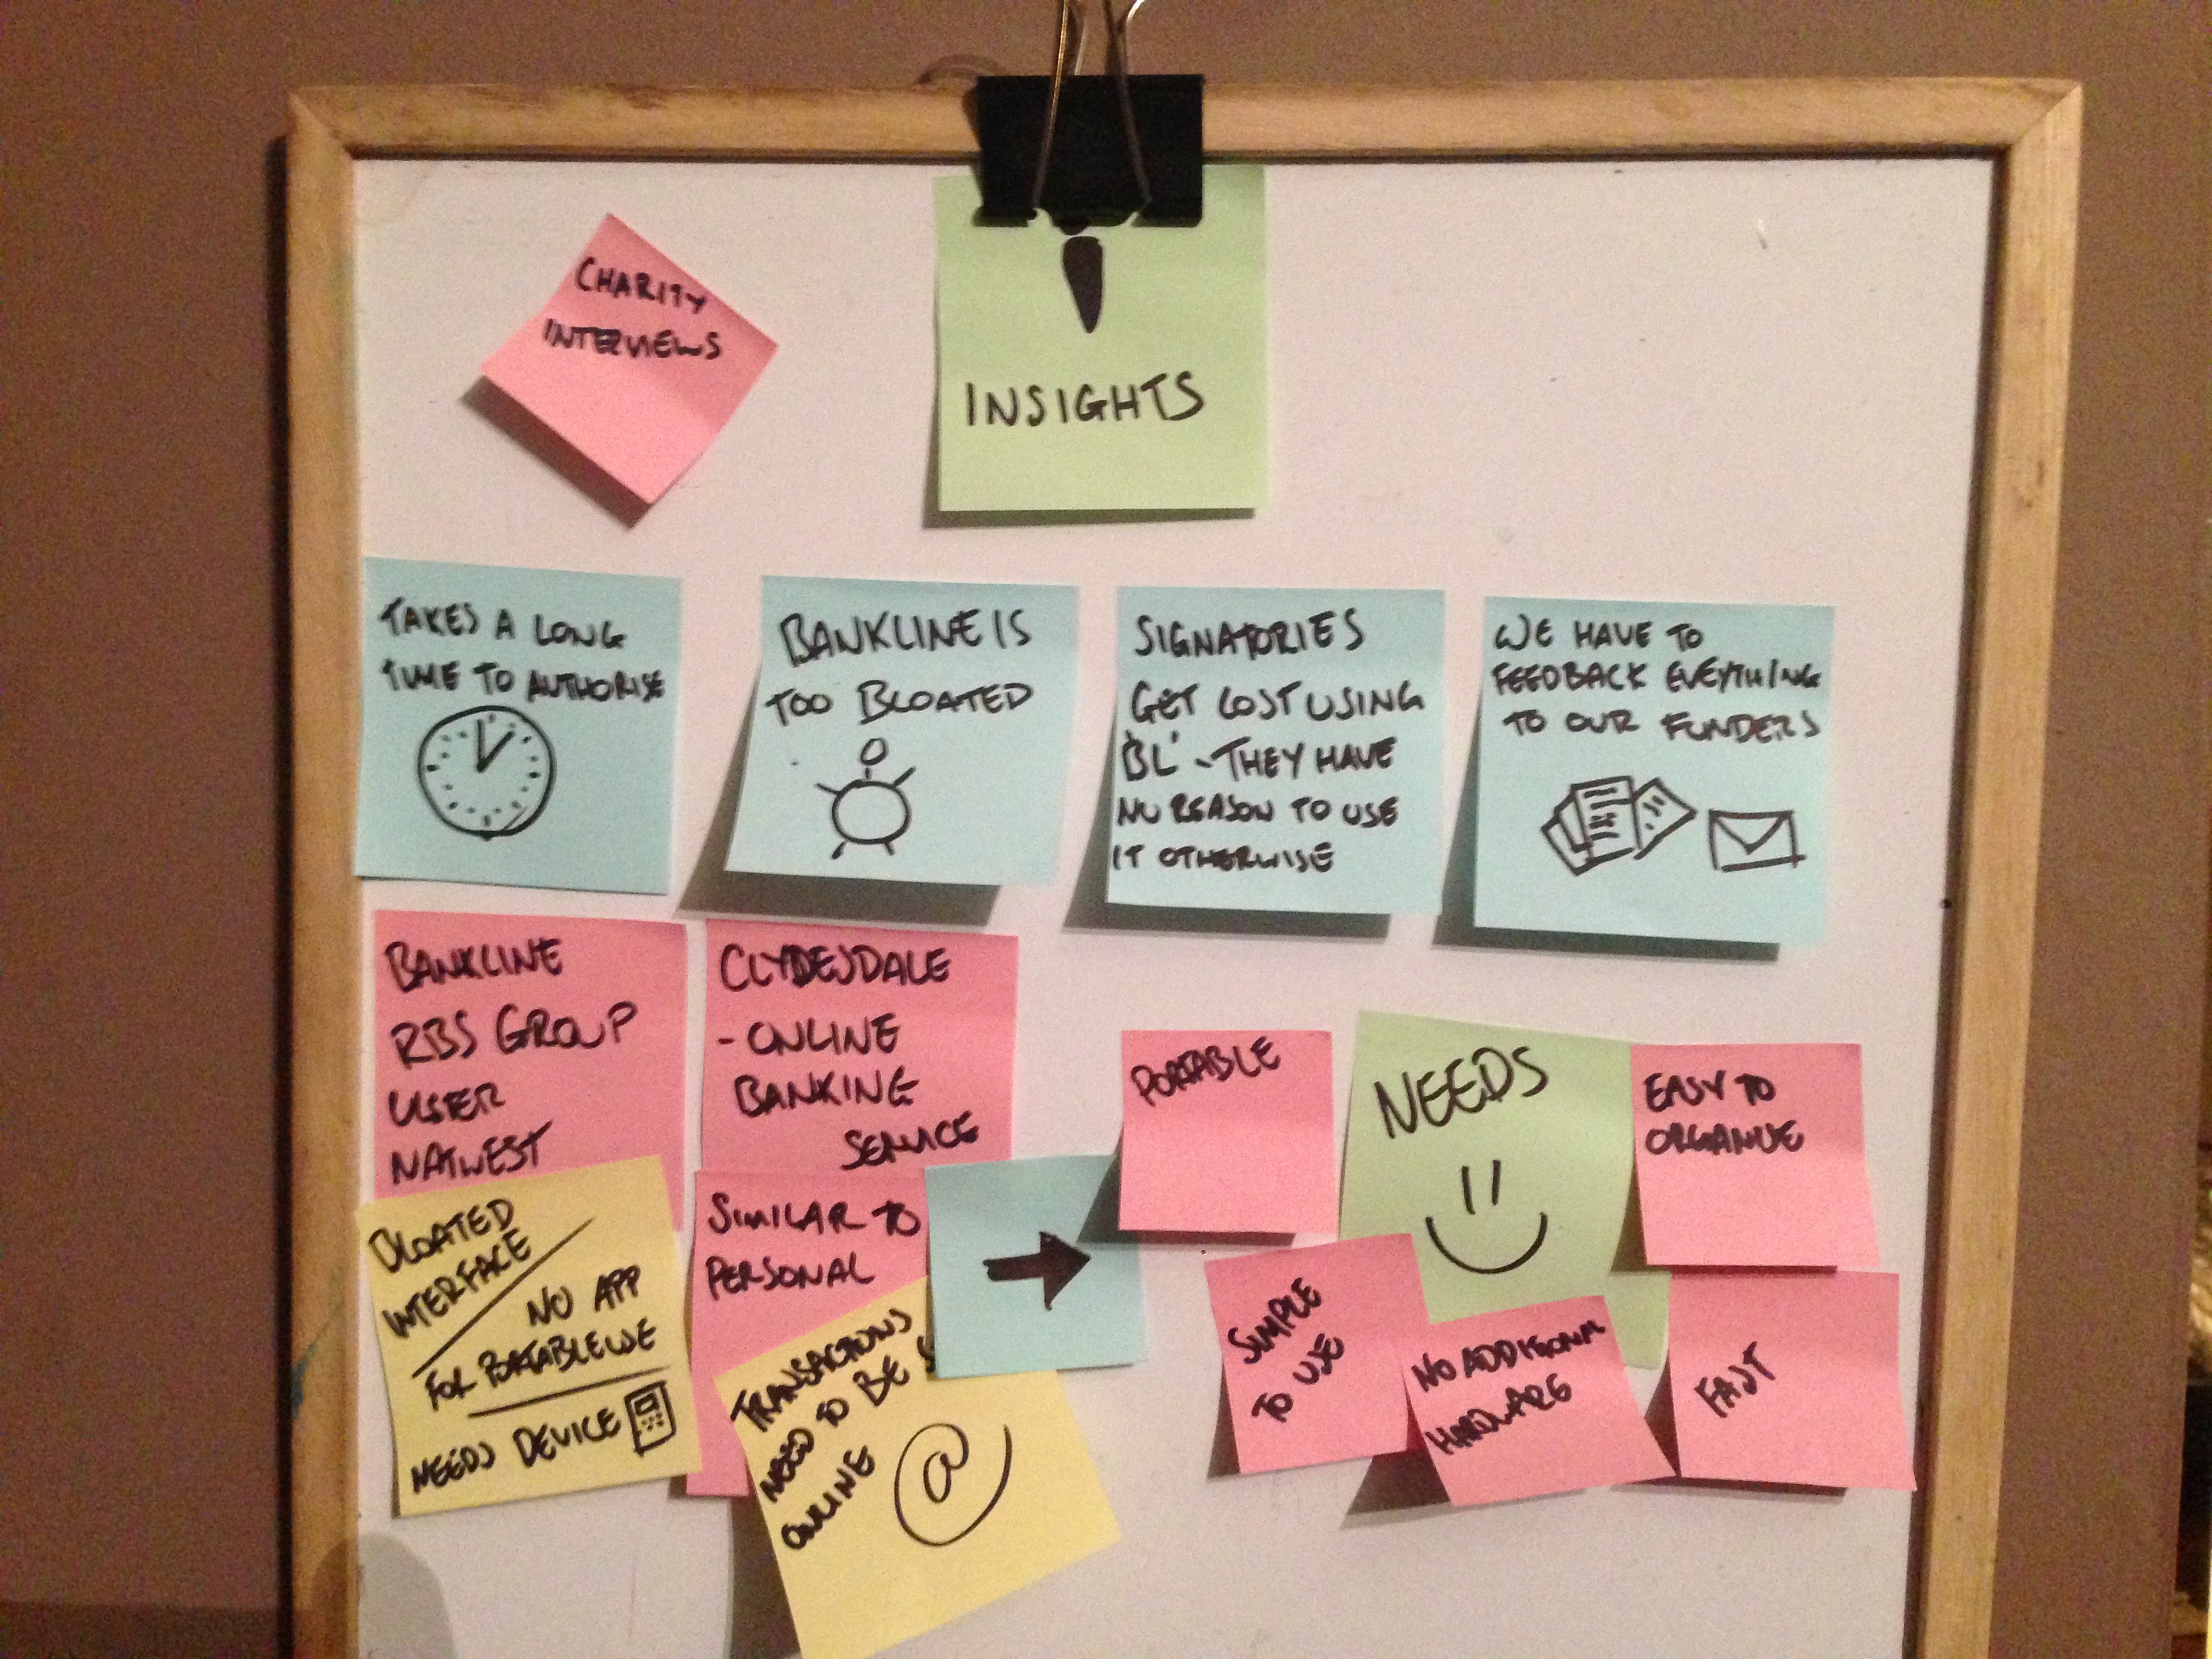 CHARITY
INTERVIEWS
INSIGHTS
TAKES A LONG
TIME TO AUTHORISE
BANKLINE IS
TOO BLOATED
SIGNATORIES
GET LOST USING
'BL' - THEY HAVE
NO REASON TO USE
IT OTHERWISE
WE HAVE TO
FEEDBACK EVEYTHING
TO OUR FUNDERS
BANKLINE
RBS GROUP
ULSTER
NATWEST
BLOATED
INTERFACE
NO APP
FOR PORTABLE USE
NEEDS DEVICE
CLYDESDALE
- ONLINE
BANKING
SERVICE
SIMILAR TO
PERSONAL
TRANSACTIONS
NEED TO BE
ONLINE
@
PORTABLE
NEEDS
EASY TO
ORGANISE
SIMPLE
TO USE
NO ADDITIONAL
HARDWARE
FAST